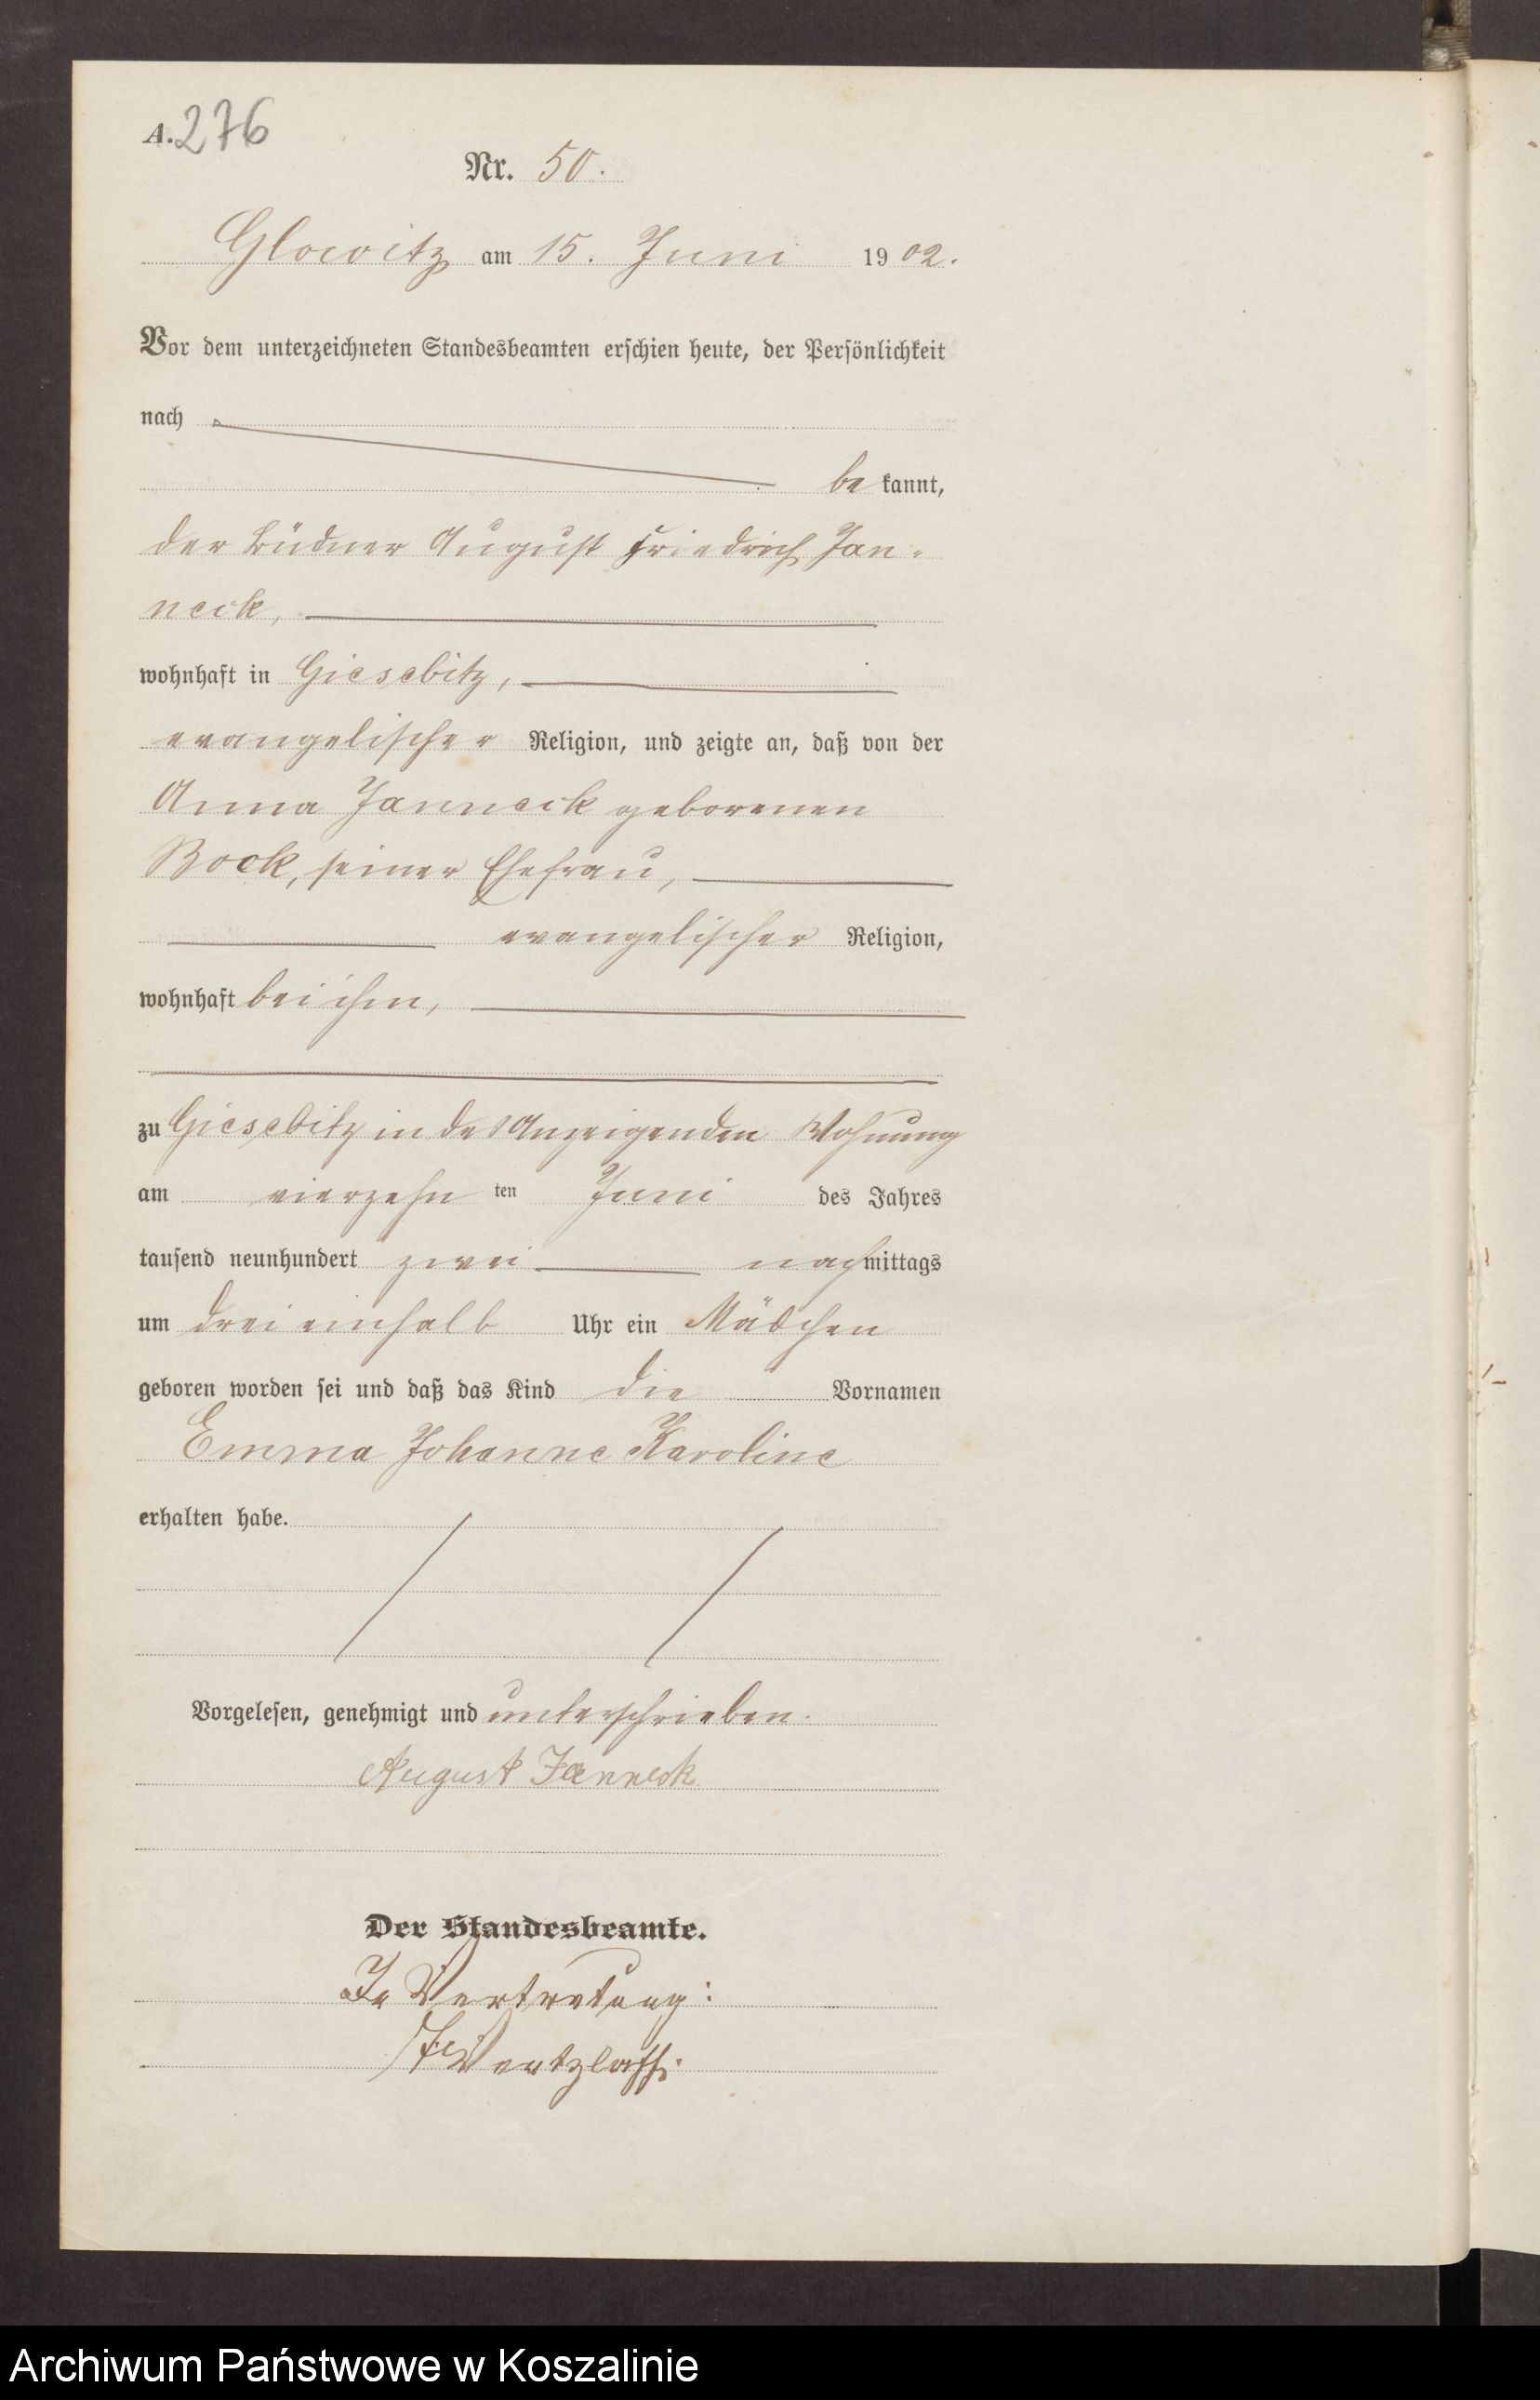 A. 276
Nr. 50.
Glowitz am 15. Juni 1902.
Vor dem unterzeichneten Standesbeamten erschien heute, der Persönlichkeit
nach
bekannt,
der Büdner August Friedrich Jan-
neck,
wohnhaft in Giesebitz,
evangelischer Religion, und zeigte an, daß von der
Anna Janneck geborenen
Bock, seiner Ehefrau,
evangelischer Religion,
wohnhaft bei ihm,
zu Giesebitz in des Anzeigenden Wohnung
am vierzehn ten Juni des Jahres
tausend neunhundert zwei nachmittags
um drei einhalb Uhr ein Mädchen
geboren worden sei und daß das Kind die Vornamen
Emma Johanne Karoline
erhalten habe.
Vorgelesen, genehmigt und unterschrieben.
August Janneck
Der Standesbeamte.
In Vertretung:
Wertzlaff.
Archiwum Państwowe w Koszalinie